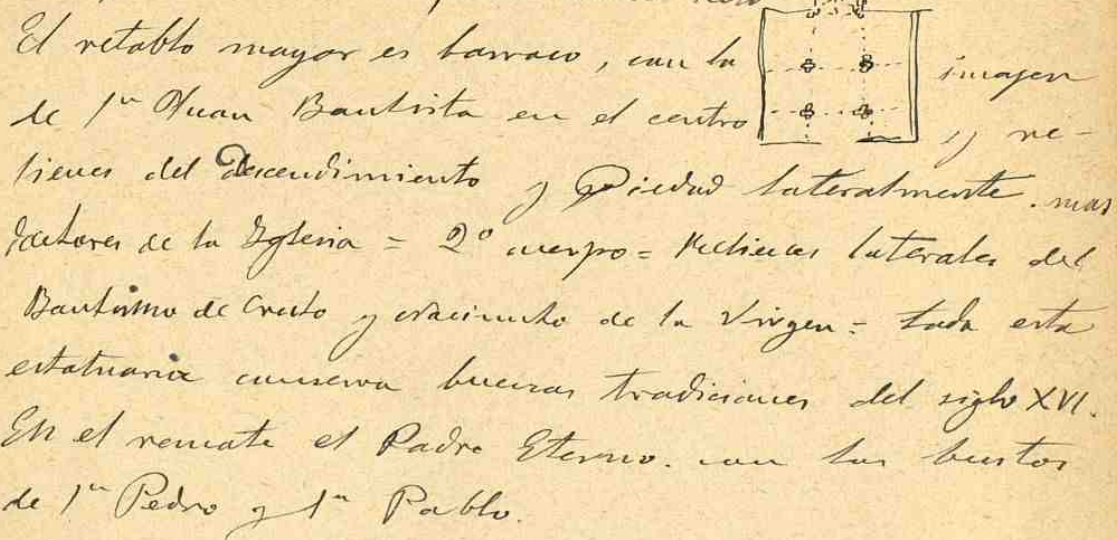 El retablo mayor es barroco, con la imagen
de Sn Juan Bautista en el centro y re-
lieves del Descendimiento y Piedad lateralmente. mas
doctores de la Iglesia = 2º cuerpo = Relieves laterales del
Bautismo de Cristo y Nacimiento de la Virgen = toda esta
estatuaria conserva buenas tradiciones del siglo XVI.
En el remate el Padre Eterno. con los bustos
de Sn Pedro y Sn Pablo.